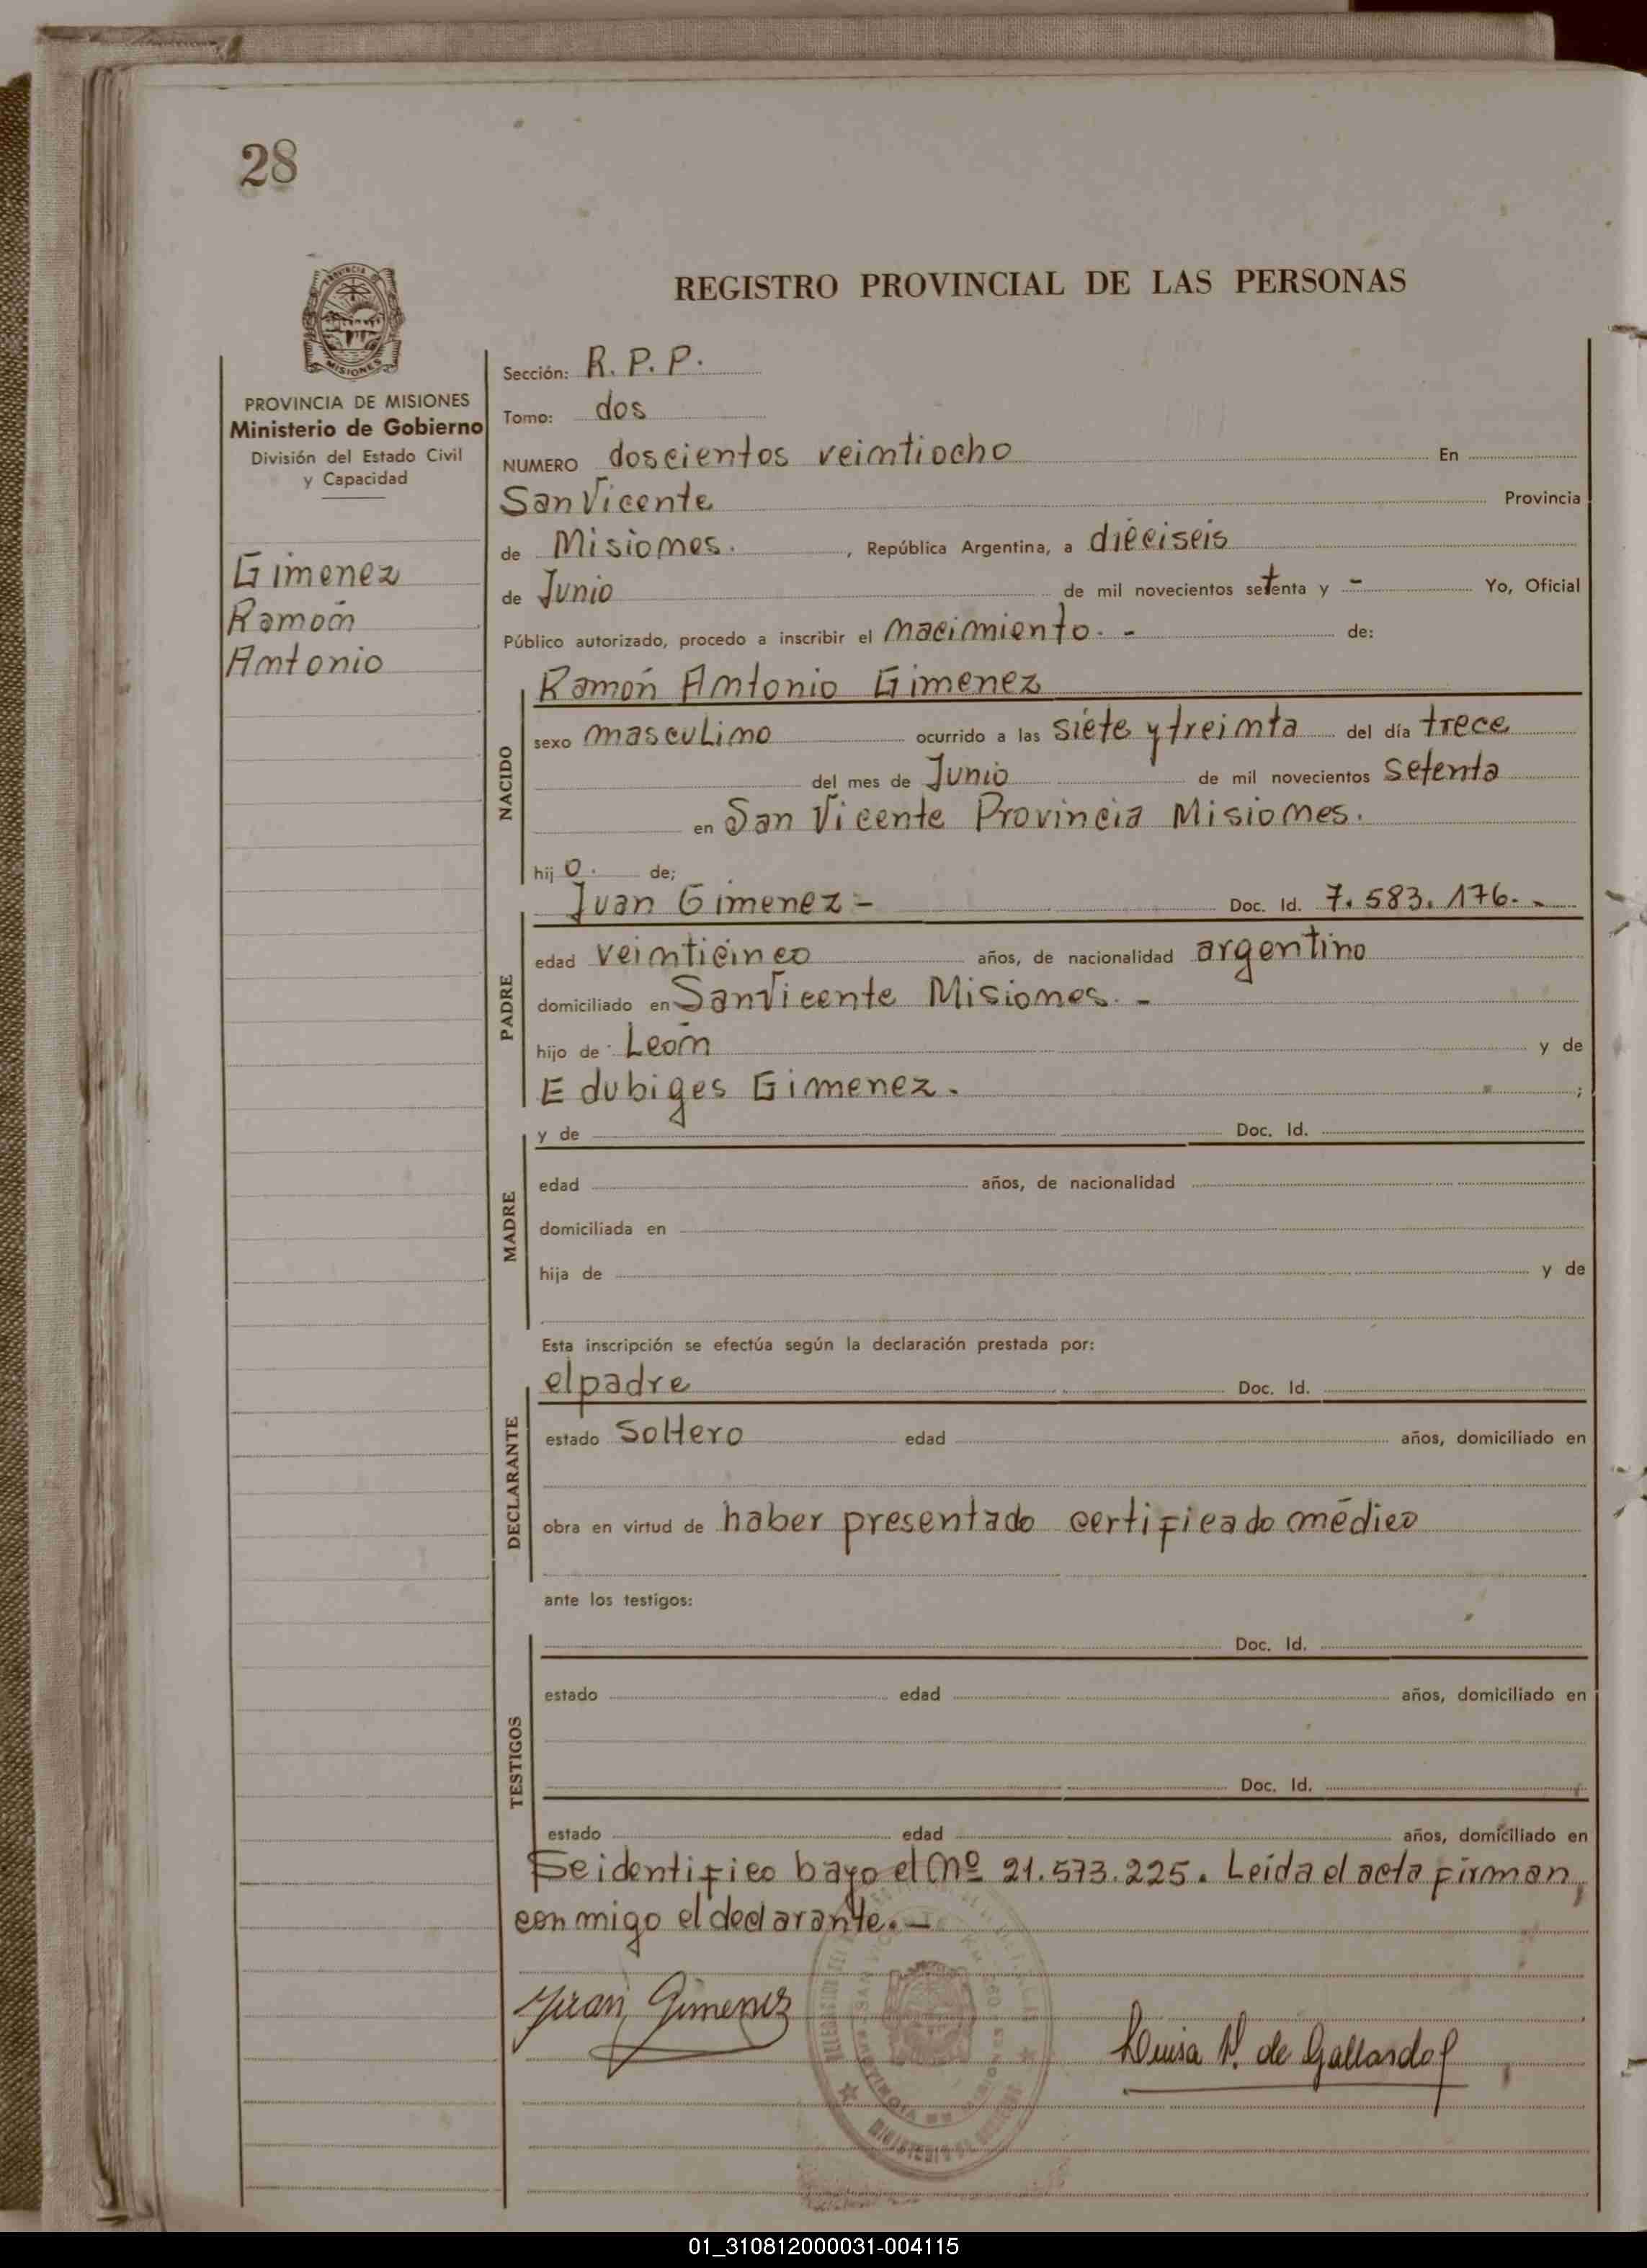 28
REGISTRO PROVINCIAL DE LAS PERSONAS
PROVINCIA DE MISIONES
Ministerio de Gobierno
División del Estado Civil
y Capacidad
Gimenez
Ramón
Antonio
Sección: R. P. P.
Tomo: dos
NUMERO doscientos veintiocho En
San Vicente Provincia
de Misiones. , República Argentina, a dieciseis
de Junio de mil novecientos setenta y - Yo, Oficial
Público autorizado, procedo a inscribir el nacimiento. - de:
NACIDO
Ramón Antonio Gimenez
sexo masculino ocurrido a las siete y treinta del día trece
del mes de Junio de mil novecientos setenta
en San Vicente Provincia Misiones.
hijo. de;
PADRE
Juan Gimenez - Doc. Id. 7.583.176. -
edad veinticinco años, de nacionalidad argentino
domiciliado en San Vicente Misiones. -
hijo de León y de
Edubiges Gimenez. ;
MADRE
y de Doc. Id.
edad años, de nacionalidad
domiciliada en
hija de y de
Esta inscripción se efectúa según la declaración prestada por:
DECLARANTE
el padre Doc. Id.
estado Soltero edad años, domiciliado en
obra en virtud de haber presentado certificado médico
ante los testigos:
TESTIGOS
Doc. Id.
estado edad años, domiciliado en
Doc. Id.
estado edad años, domiciliado en
Se identifico bayo el nº 21.573.225. Leída el acta firman,
con migo el declarante. -
Juan Gimenez
Luisa de Gallardo
01_310812000031-004115